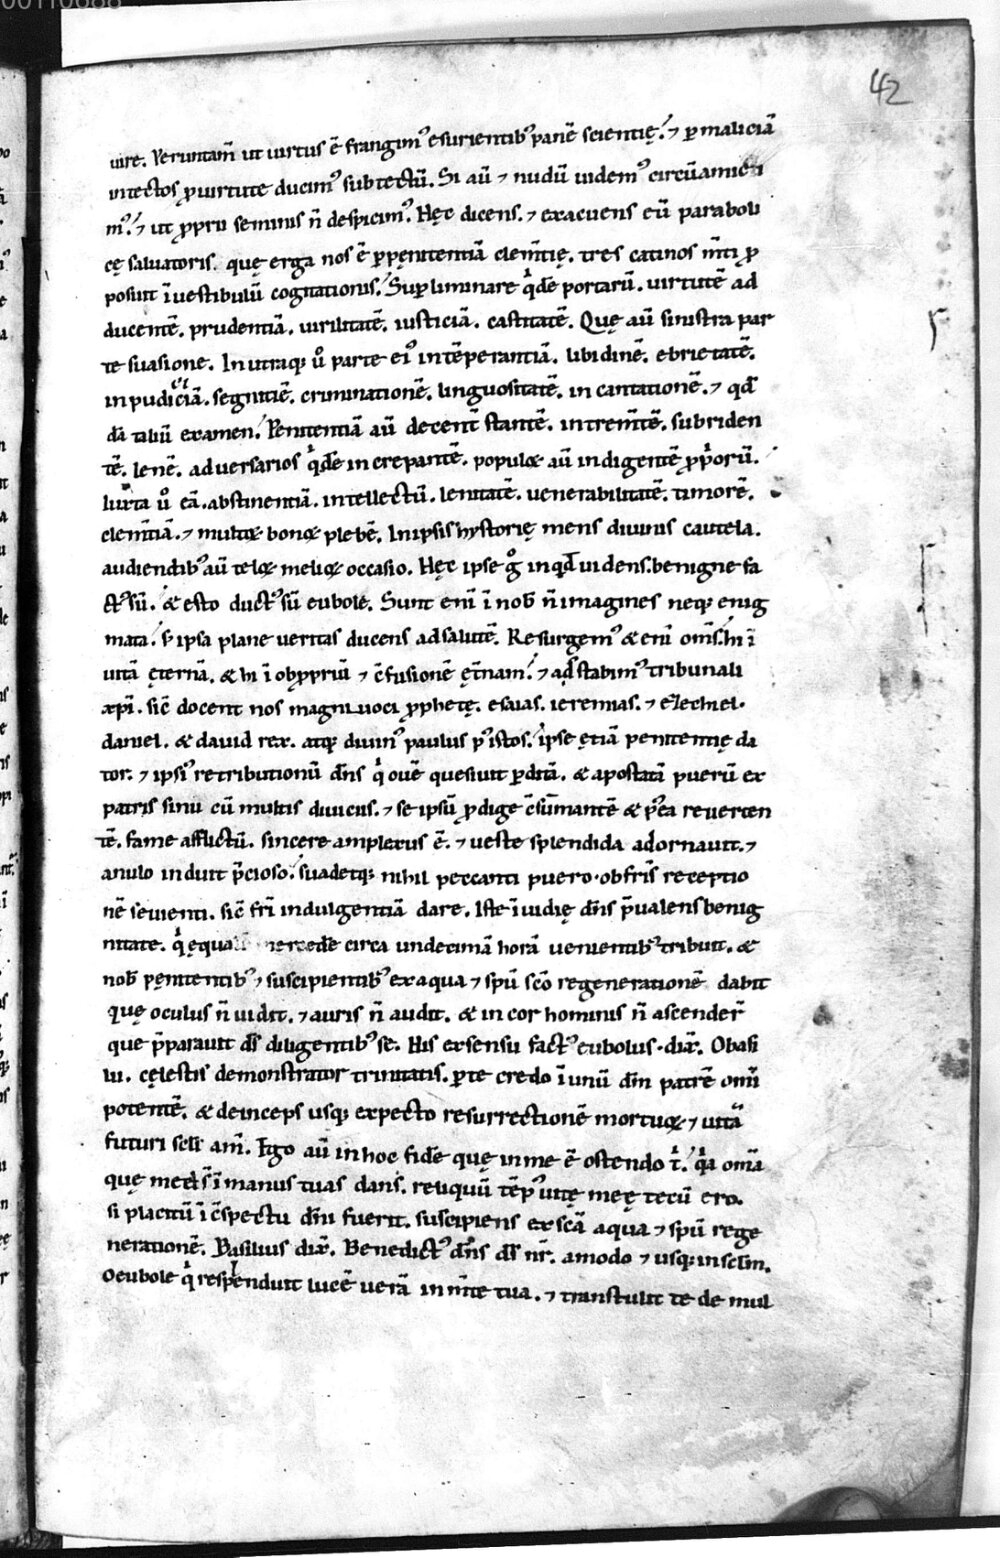 00110688
42
uire. Veruntam̄ ut uirtus ē frangim᷒ esurientib᷒ panē scientię. ⁊ ꝑ maliciā
intectos ꝓ uirtute ducim᷒ sub tectū. Si aū ⁊ nudū uidem᷒ circūamici
m᷒. ⁊ ut ꝓprii seminis n̄ despicim᷒. Hęc dicens. ⁊ exacuens eū paraboli
cę saluatoris. quę erga nos ē ꝑ pęnitentiā clem̄tię. tres catinos m̄ti ꝓ
posuit ī uestibulū cogitationis. Suꝑ liminare qͥdē portarū. uirtutē ad
ducentē. prudentiā. uirilitatē. iusticiā. castitatē. Quę aū sinistra par
te suasione. In utraq; u̓ parte ei᷒ intēperantiā. libidinē. ebrietatē.
inpudiciā. segnitiē. criminationē. linguositatē. in cantationē. ⁊ qd̄
dā taliū examen. Penitentiā aū decent̄ stantē. intrem̄tē. subriden
tē. lenē. aduersarios qͥdē increpantē. populoꝝ aū indigentē ꝓpͥorū.
Iuxta u̓ eā. abstinentiā. intellectū. lenitatē. uenerabilitatē. timorē.
clem̄tiā. ⁊ multoꝝ bonoꝝ plebē. In ipsis hystorię mens diuinis cautela.
audientib᷒ aū teloꝝ melioꝝ occasio. Hęc ipse gͦ inquid uidens. benigne fa
ct᷒ sū. & esto duct᷒ sū eubole. Sunt eni ī nob̄ n̄ imagines neq; enig
mata. s; ipsa plane ueritas ducens ad salutē. Resurgem᷒ & eni om̄s. hi ī
uitā ęternā. & hi ī obꝓpriū ⁊ c̄fusionē ęt̄nam. ⁊ ad stabim᷒ tribunali
xp̄i. sic̄ docent nos magniuoci ꝓphetę. esaias. ieremias. ⁊ ezechiel.
daniel. & dauid rex. atq; diuin᷒ paulus p᷒ istos. ipse ętiā penitentię da
tor. ⁊ ipsi᷒ retributionū dn̄s qͥ ouē quesiuit ꝑditā. & apostatā puerū ex
patris sinu cū multis diuiciis. ⁊ se ipsū ꝓdige c̄sūmantē & p᷒ea reuerten
tē. fame afflictū. sincere amplexus ē. ⁊ ueste splendida adornauit. ⁊
anulo induit p̄cioso. suadetq; nihil peccanti puero. ob fr̄is receptio
nē seuienti. sic̄ fr̄i indulgentiā dare. Iste ī uidię dn̄s p̄ualens benig
nitate. qͥ ęqualē mercedē circa undecimā horā uenientib᷒ tribuit. &
nob̄ pęnitentib᷒ ⁊ suscipientib᷒ ex aqua ⁊ spū scō regenerationē dabit
quę oculus n̄ uidit. ⁊ auris n̄ audit. & in cor hominis n̄ ascender̄
que p̄parauit ds̄ diligentib᷒ se. His ex sensu fact᷒ eubolus. dix̄. O basi
lii. cęlestis demonstrator trinitatis. ꝑ te credo ī unū dm̄ patrē omi
potentē. & deinceps usq; expecto resurrectionē mortuoꝝ ⁊ uitā
futuri scl̄i am̄. Ego aū in hoc fidē quę in me ē ostendo tͥ. qͥa omīa
quę mea s̄ ī manus tuas dans. reliquū tēp᷒ uitę meę tecū ero.
si placitū ī c̄spectu dm̄ fuerit. suscipiens ex scā aqua ⁊ spū rege
nerationē. Basilius dix̄. Benedict᷒ dn̄s ds̄ nr̄. amodo ⁊ usq; in sclm̄.
O eubole qͥ resplenduit lucē uerā in m̄te tua. ⁊ transtulit te de mul